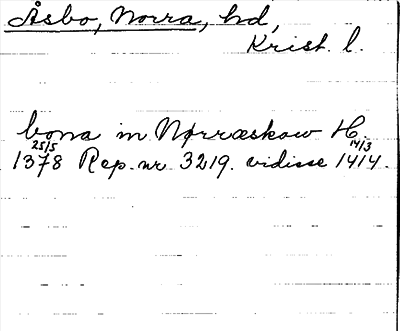 Åsbo, Norra, hd,
Krist. l.
bona in Nørræskow H.
1378 25/5 Rep. nr 3219. vidisse 1414 14/3.